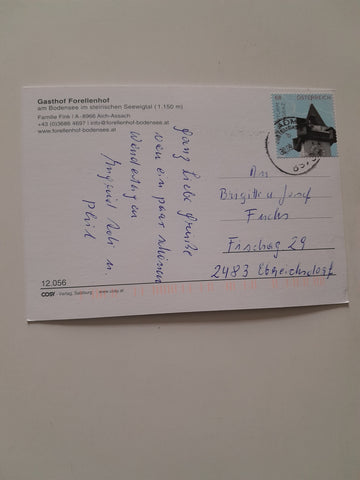 Gasthof Forellenhof
am Bodensee im steirischen Seewigtal (1.150 m)
Familie Fink | A-8966 Aich-Assach
+43 (0)3686 4697 | info@forellenhof-bodensee.at
www.forellenhof-bodensee.at
ÖSTERREICH
ganz liebe Grüße
von ein paar schönen
Wandertagen
Ingrid u.
An
Brigitte u. Josef
Fuchs
29
2483 Ebreichsdorf
12.056
COSY - Verlag, Salzburg www.cosy.at